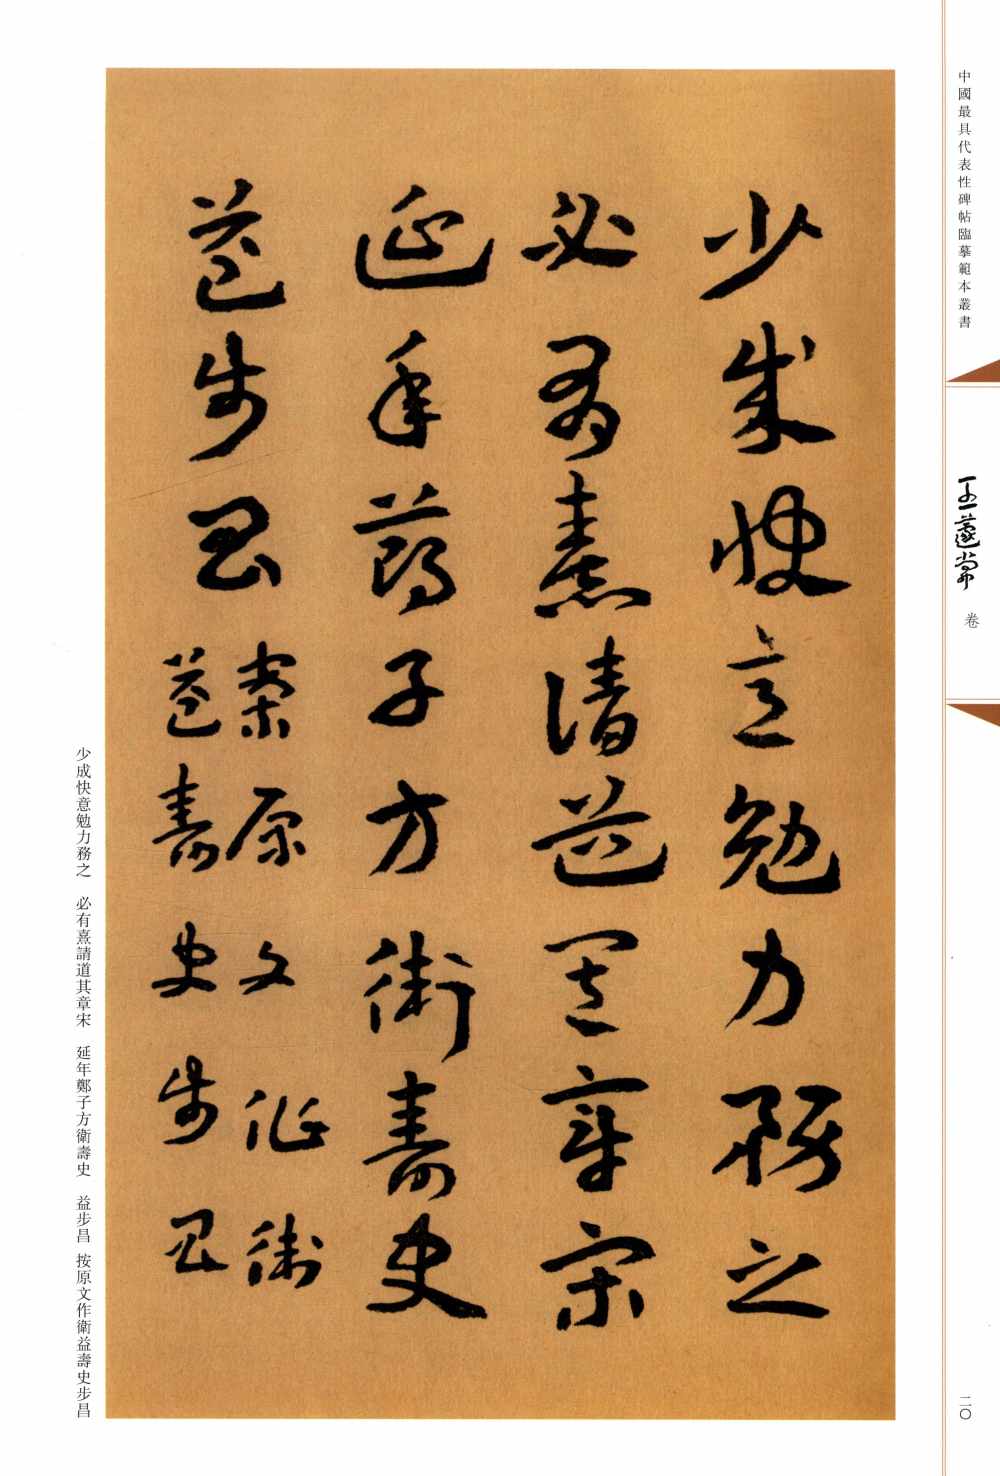 中國最具代表性碑帖臨摹範本叢書
王蘧常
卷
二〇
少成快意勉力務之
必有熹請道其章宋
延年鄭子方衛壽史
益步昌
案原文作衛
益壽史步昌
少成快意勉力務之 必有熹請道其章宋 延年鄭子方衛壽史 益步昌 按原文作衛益壽史步昌